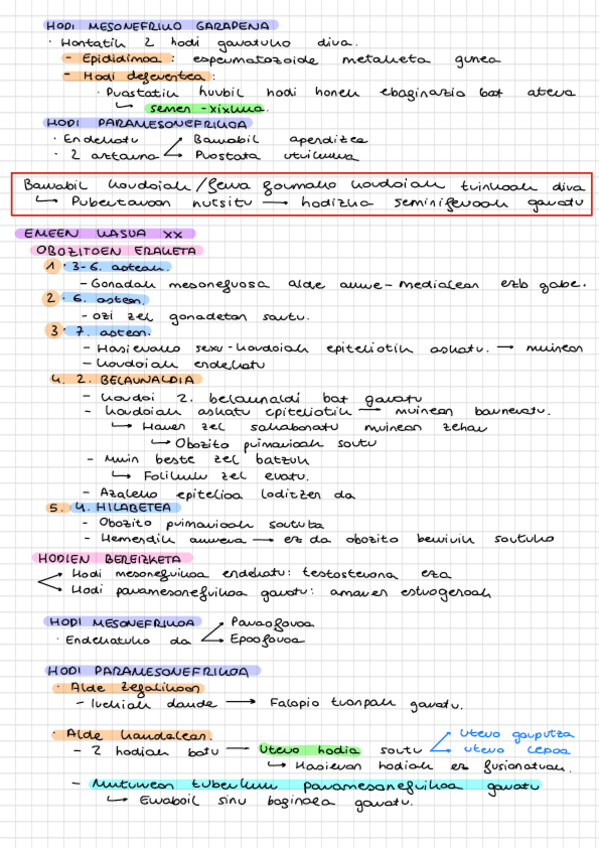 HODI MESONEFRIKO GARAPENA
· Hortatik 2 hodi garatuko dira.
- Epididimoa : espermatozoide metaketa gunea
- Hodi deferentea :
· Prostatik hurbil hodi honek ebaginazio bat atera
↳ semen-xixkua.
HODI PARAMESONEFRIKOA
· Endekatu → Barrabil apendizea
· 2 aztarna → Prostata utrikulua
Barrabil kordoiak/Gerra formako kordoiak trinkoak dira
↳ Pubertaroan hutsitu → hodixka seminiferoak garatu
EMEEN KASUA XX
OBOZITOEN ERAKETA
1 · 3-6. astean.
- Gonadak mesonefrosa alde aurre-medialean ezb gabe.
2 · 6. astean.
- OZI zel gonadetan sartu.
3 · 7. astean.
- Hasierako sexu-kordoiak epiteliotik askatu. → muinean
- Kordoiak endekatu
4. 2. BELAUNALDIA
- Kordoi 2. belaunaldi bat garatu
- Kordoiak askatu epiteliotik → muinean barneratu.
↳ Hauen zel sakabanatu muinean zehar
↳ Obozito primarioak sortu
- Muin beste zel batzuk
↳ Folikulu zel eratu.
- Azaleko epitelioa loditzen da
5. 4. HILABETEA
- Obozito primarioak sortuta
- Hemendik aurrera → ez da obozito berririk sortuko
HODIEN BEREIZKETA
Hodi mesonefrikoa endekatu: testosterona eza
Hodi paramesonefrikoa garatu: amaren estrogenoak
HODI MESONEFRIKOA → Paraoforoa
· Endekatuko da → Epooforoa
HODI PARAMESONEFRIKOA
· Alde zefalikoan
- Irekiak daude → Falopio tronpak garatu.
· Alde kaudalean.
- 2 hodiak batu → Utero hodia sortu → Utero gorputza
→ utero lepoa
↳ Hasieran hodiak ez fusionatuak.
- Muturrean tuberkulu paramesonefrikoa garatu
↳ Erraboil sinu baginala garatu.